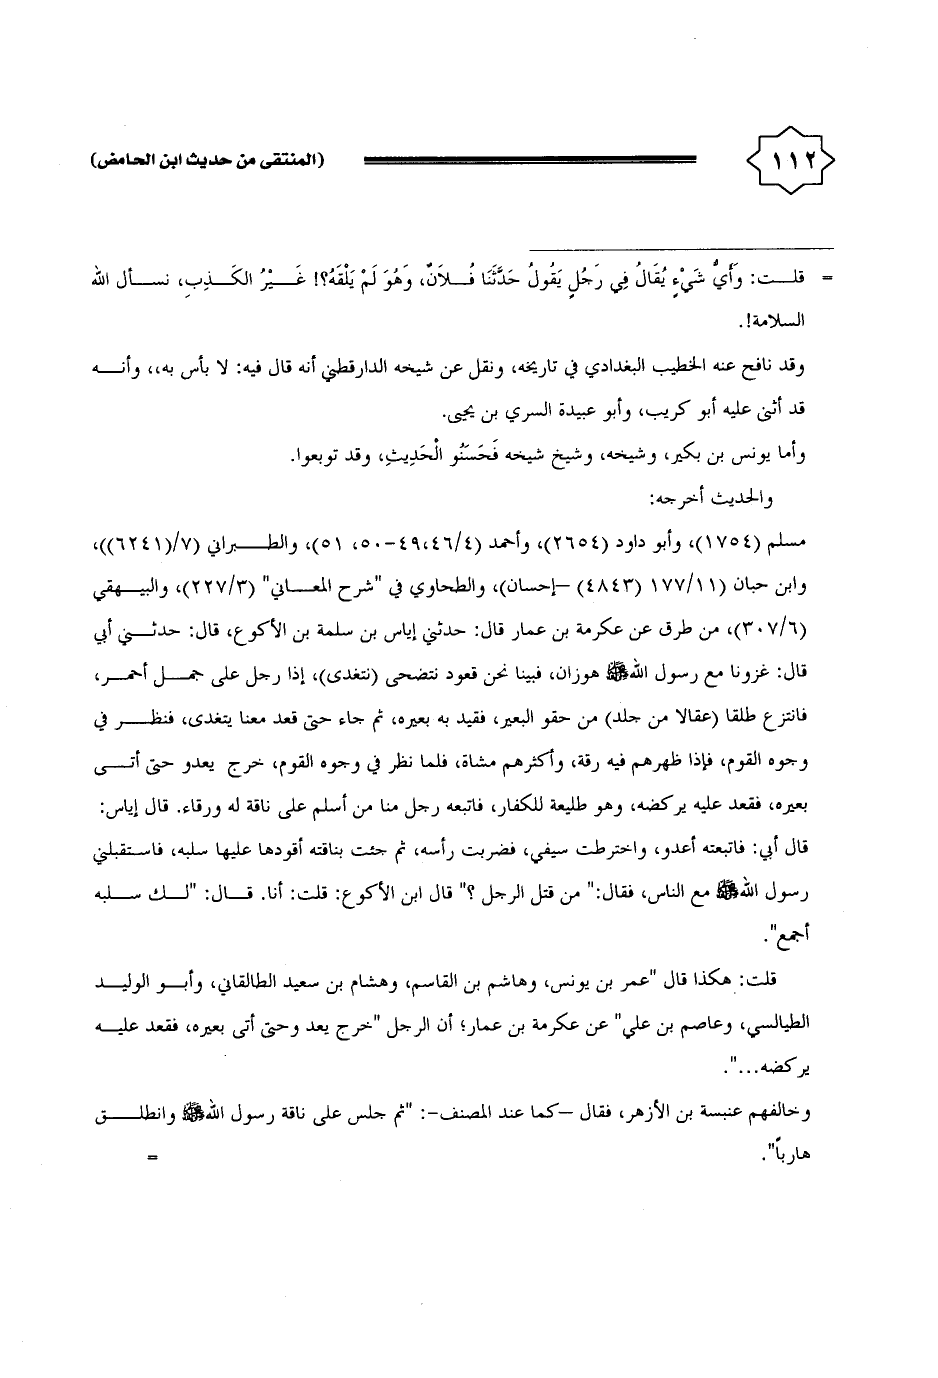 ١١٢
(المنتقى من حديث ابن الحامض)
= قلت: وَأَيُّ شَيْءٍ يُقَالُ فِي رَجُلٍ يَقُولُ حَدَّثَنَا فُلاَنٌ، وَهُوَ لَمْ يَلْقَهُ؟! غَيْرُ الكَذِبِ، نسأل الله
السلامة!.
وقد نافح عنه الخطيب البغدادي في تاريخه، ونقل عن شيخه الدارقطني أنه قال فيه: لا بأس به،، وأنه
قد أثنى عليه أبو كريب، وأبو عبيدة السري بن يحيى.
وأما يونس بن بكير، وشيخه، وشيخ شيخه فَحَسَنُو الْحَدِيثِ، وقد توبعوا.
والحديث أخرجه:
مسلم (١٧٥٤)، وأبو داود (٢٦٥٤)، وأحمد (٤٦/٤،٤٩-٥٠، ٥١)، والطبراني (٧/(٦٢٤١))،
وابن حبان (١٧٧/١١ (٤٨٤٣) –إحسان)، والطحاوي في "شرح المعاني" (٢٢٧/٣)، والبيهقي
(٣٠٧/٦)، من طرق عن عكرمة بن عمار قال: حدثني إياس بن سلمة بن الأكوع، قال: حدثني أبي
قال: غزونا مع رسول اللهﷺ هوزان، فبينا نحن قعود نتضحى (نتغدى)، إذا رجل على جمل أحمر،
فانتزع طلقا (عقالا من جلد) من حقو البعير، فقيد به بعيره، ثم جاء حتى قعد معنا يتغدى، فنظر في
وجوه القوم، فإذا ظهرهم فيه رقة، وأكثرهم مشاة، فلما نظر في وجوه القوم، خرج يعدو حتى أتى
بعيره، فقعد عليه يركضه، وهو طليعة للكفار، فاتبعه رجل منا من أسلم على ناقة له ورقاء. قال إياس:
قال أبي: فاتبعته أعدو، واخترطت سيفي، فضربت رأسه، ثم جئت بناقته أقودها عليها سلبه، فاستقبلني
رسول اللهﷺ مع الناس، فقال:" من قتل الرجل ؟" قال ابن الأكوع: قلت: أنا. قال: "لك سلبه
أجمع".
قلت: هكذا قال "عمر بن يونس، وهاشم بن القاسم، وهشام بن سعيد الطالقاني، وأبو الوليد
الطيالسي، وعاصم بن علي" عن عكرمة بن عمار؛ أن الرجل "خرج يعد وحتى أتى بعيره، فقعد عليه
يركضه...".
وخالفهم عنبسة بن الأزهر، فقال –كما عند المصنف-: "ثم جلس على ناقة رسول اللهﷺ وانطلق
هارباً".
=